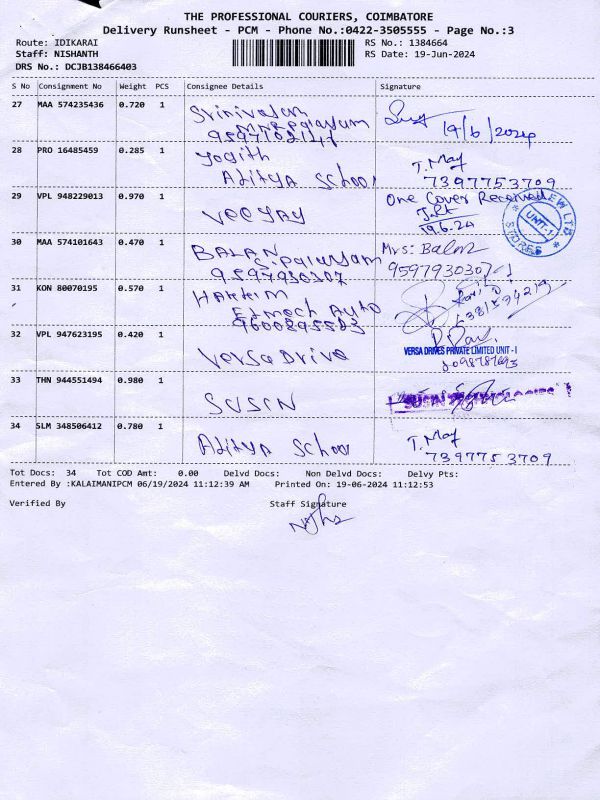 THE PROFESSIONAL COURIERS, COIMBATORE
Delivery Runsheet - PCM - Phone No.:0422-3505555 - Page No.:3
Route: IDIKARAI
RS No.: 1384664
Staff: NISHANTH
RS Date: 19-Jun-2024
DRS No.: DCJB138466403
S No Consignment No Weight PCS Consignee Details Signature
27 MAA 574235436 0.720 1 Srinivasan
9597102147
19/6/2024
28 PRO 16485459 0.285 1 Yogith
Aditya School
T. May
7397753709
29 VPL 948229013 0.970 1 VEEYAY
One Cover Received
19.6.24
UNIT-1
STORES
30 MAA 574101643 0.470 1 BALAN
S. Palayam
9597930307
Mrs: Balan
9597930307
31 KON 80070195 0.570 1 HAKKIM
Elmech Auto
9600895583
32 VPL 947623195 0.420 1 Versa Drive
VERSA DRIVES PRIVATE LIMITED UNIT - I
33 THN 944551494 0.980 1 SUSIN
34 SLM 348506412 0.780 1 Aditya School
T. May
7397753709
Tot Docs: 34 Tot COD Amt: 0.00 Delvd Docs: Non Delvd Docs: Delvy Pts:
Entered By :KALAIMANIPCM 06/19/2024 11:12:39 AM Printed On: 19-06-2024 11:12:53
Verified By Staff Signature